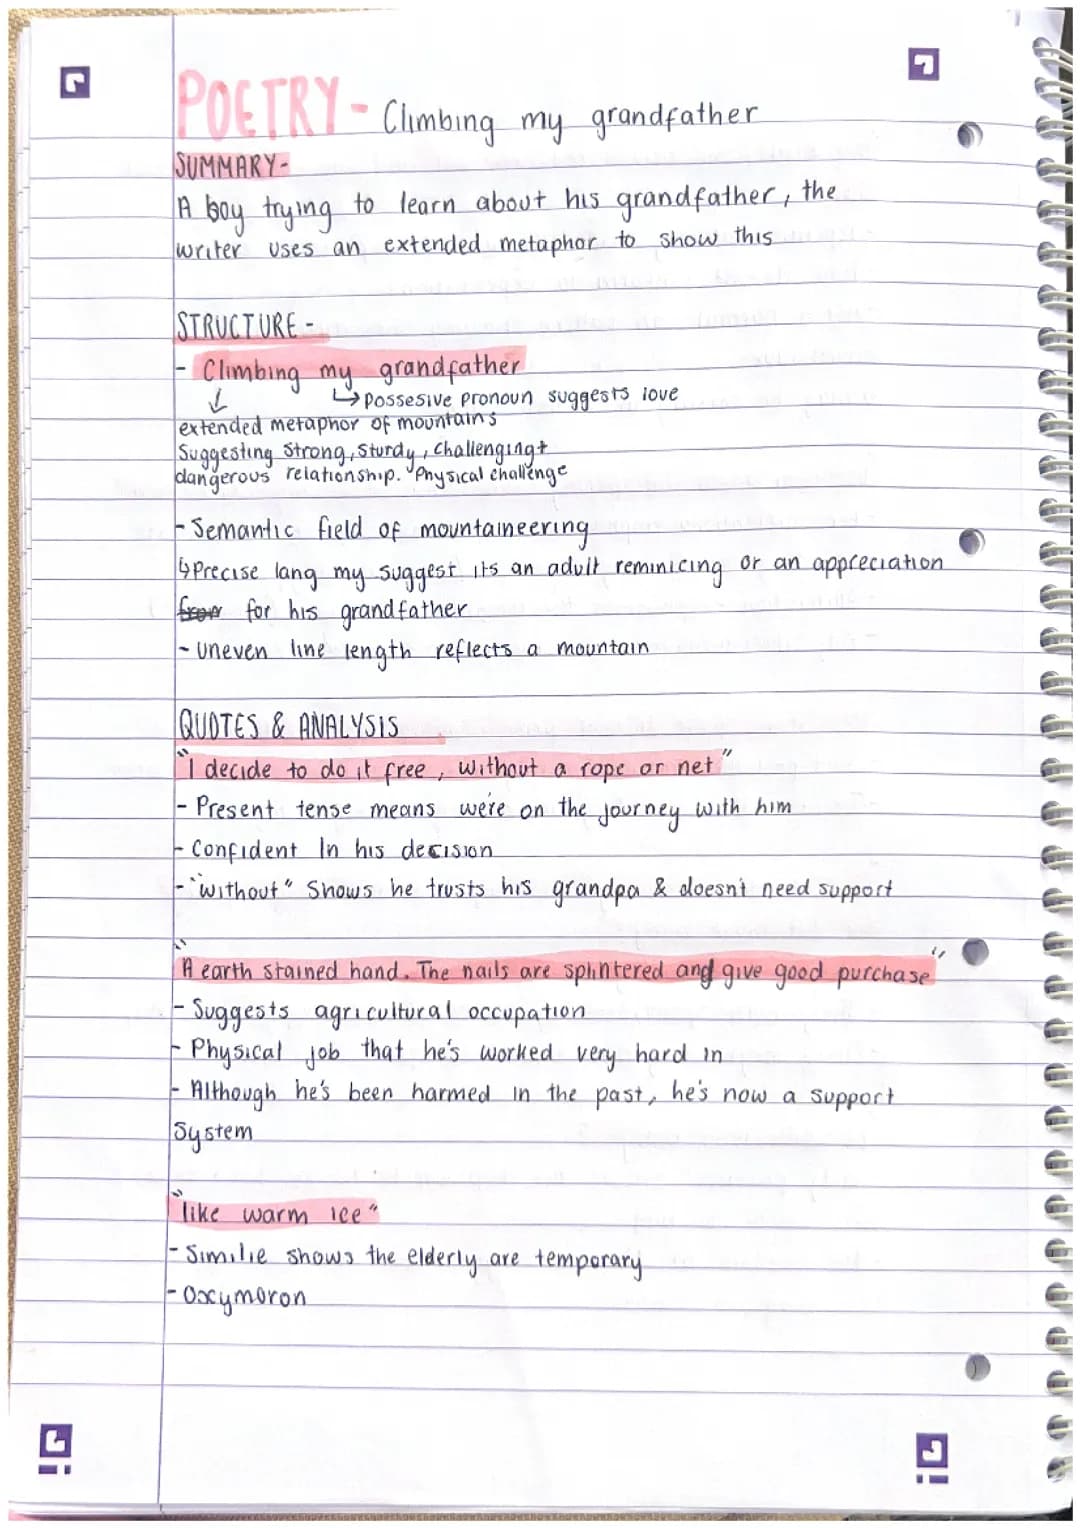 POETRY - Climbing my grandfather
SUMMARY-
A boy trying to learn about his grandfather, the
writer uses an extended metaphor to show this
STRUCTURE -
- Climbing my grandfather
↓ ↳ possesive pronoun suggests love
extended metaphor of mountains
Suggesting strong, sturdy, challenging +
dangerous relationship. Physical challenge
- Semantic field of mountaineering
↳ Precise lang my suggest its an adult reminicing or an appreciation
from for his grandfather
- uneven line length reflects a mountain
QUOTES & ANALYSIS
"I decide to do it free, without a rope or net"
- Present tense means we're on the journey with him
- Confident in his decision
- "without" Shows he trusts his grandpa & doesn't need support
"A earth stained hand. The nails are splintered and give good purchase"
- Suggests agricultural occupation
- Physical job that he's worked very hard in
- Although he's been harmed in the past, he's now a support
System
"like warm ice"
- Similie shows the elderly are temporary
- Oxymoron